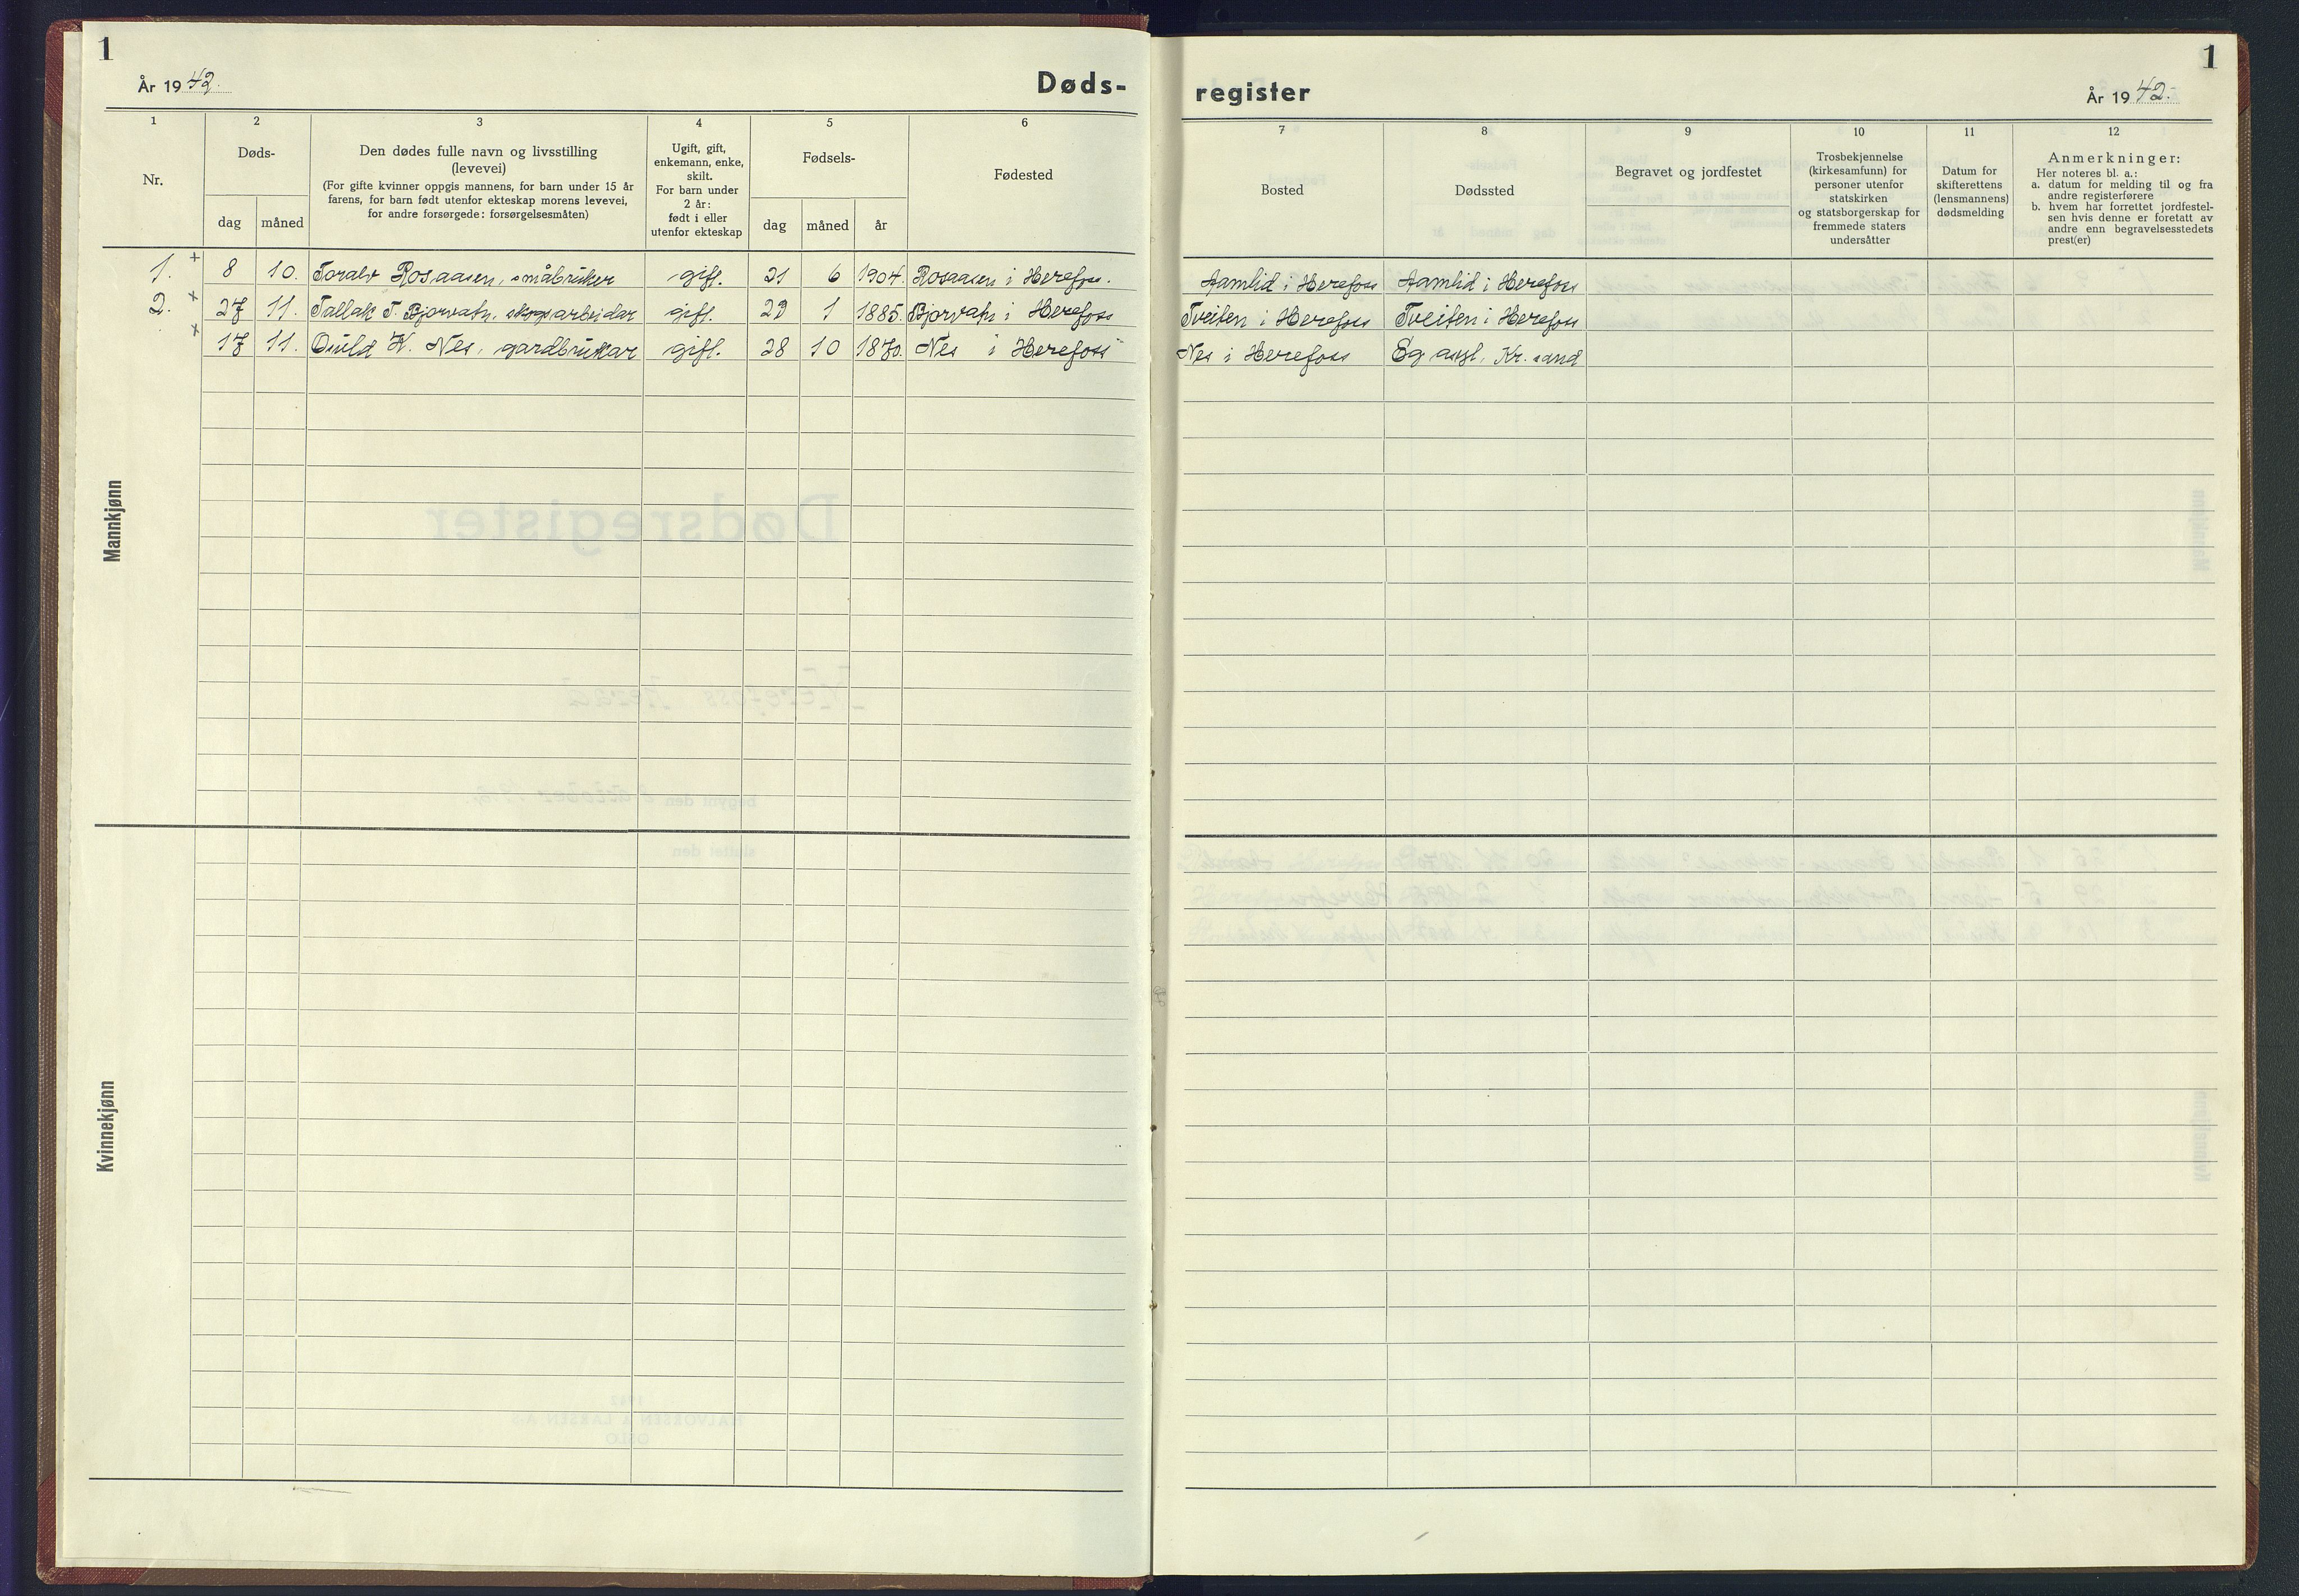 1
1
År 1942.
Døds-
register
År 1942.
1
2
3
4
5
6
7
8
9
10
11
12
Nr.
Døds-
dag
måned
Den dødes fulle navn og livsstilling
(levevei)
(For gifte kvinner oppgis mannens, for barn under 15 år
farens, for barn født utenfor ekteskap morens levevei,
for andre forsørgede: forsørgelsesmåten)
Ugift, gift,
enkemann, enke,
skilt.
For barn under
2 år:
født i eller
utenfor ekteskap
Fødsels-
dag
måned
år
Fødested
Bosted
Dødssted
Begravet og jordfestet
Trosbekjennelse
(kirkesamfunn) for
personer utenfor
statskirken
og statsborgerskap for
fremmede staters
undersåtter
Datum for
skifterettens
(lensmannens)
dødsmelding
Anmerkninger:
Her noteres bl. a.:
a. datum for melding til og fra
andre registerførere
b. hvem har forrettet jordfestel-
sen hvis denne er foretatt av
andre enn begravelsesstedets
prest(er)
Mannkjønn
1. + 8 10. Toralv Rosaasen, småbruker gift. 21 6 1904. Rosaasen i Herefoss. Aamlid i Herefoss Aamlid i Herefoss
2. + 27 11. Tallak T. Bjorvatn, skogsarbeidar gift. 29 1 1885. Bjorvatn i Herefoss Tveiten i Herefoss Tveiten i Herefoss
+ 17 11. K. Nes, gardbrukar gift. 28 10 1870. Nes i Herefoss Nes i Herefoss Eg asyl, Kr.sand
Kvinnekjønn